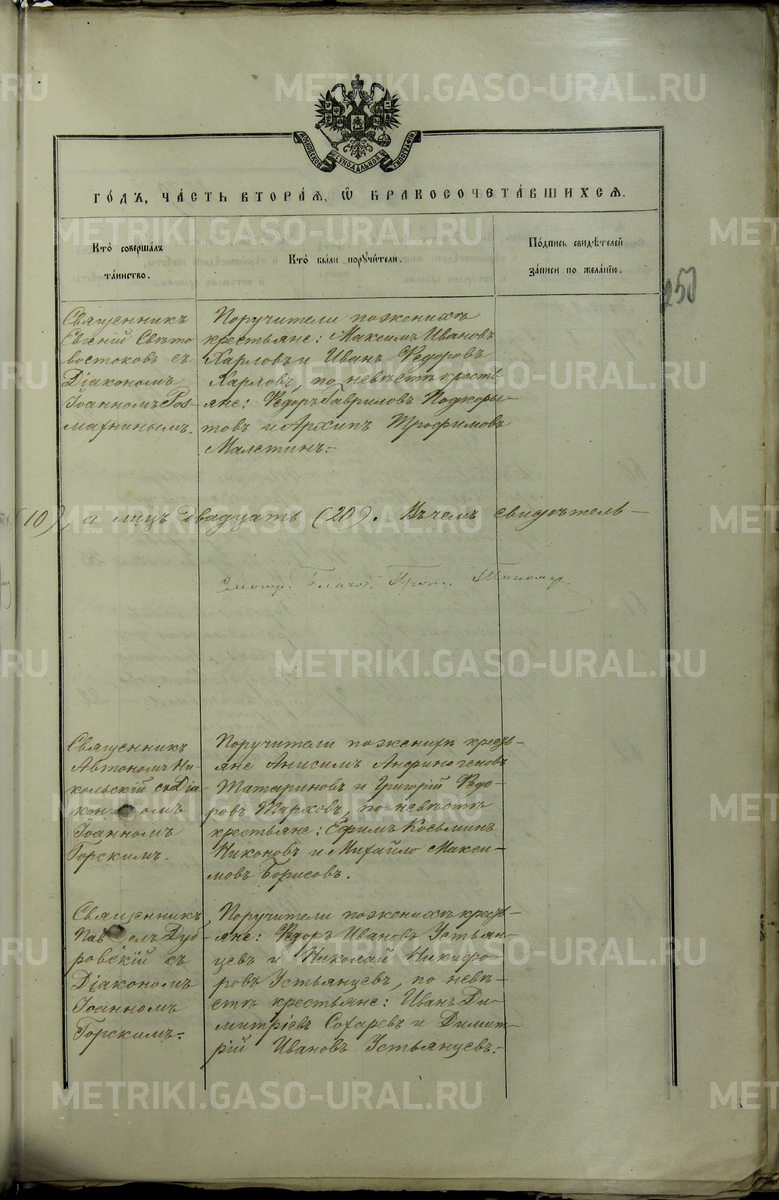 METRIKI.GASO-URAL.RU
МОСКОВСКОЙ СѴНОДАЛЬНОЙ ТИПОГРАФІИ
ГО́ДЪ, ЧА́СТЬ ВТОРА́Я, Ѡ҆ БРАКОСОЧЕТА́ВШИХСЯ.
Кто̀ соверша́лъ та́инство.
Кто̀ бы́ли порꙋчи́тели.
По́дпись свидѣ́телей за́писи по жела́нїю.
250
Священникъ
Евгеній Свѣто
востоковъ съ
Діакономъ
Іоанномъ
Поручители по женихѣ
крестьяне: Максимъ Ивановъ
Харловъ и Иванъ Ѳедоровъ
Харловъ, по невѣстѣ кресть
яне: Ѳедоръ Гавриловъ Подкоры
товъ и Архипъ Трофимовъ
Малетинъ.
(10), а лицъ двадцать (20). Въ чемъ свидѣтель—
Священникъ
Автономъ Ни
кольскій съ Діа
кономъ
Іоанномъ
Горскимъ.
Поручители по женихѣ кресть
яне Анисимъ Анфиногеновъ
Татариновъ и Григорій Ѳедо
ровъ Тарховъ, по невѣстѣ
крестьяне: Ефимъ Косьминъ
Никоновъ и Михайло Макси
мовъ Борисовъ.
Священникъ
Павелъ Дуб
ровскій съ
Діакономъ
Іоанномъ
Горскимъ.
Поручители по женихѣ кресть
яне: Ѳедоръ Ивановъ Устьян
цевъ и Николай Никифо
ровъ Устьянцевъ, по невѣ
стѣ крестьяне: Иванъ Ди
митріевъ Сохаревъ и Димит
рій Ивановъ Устьянцевъ.